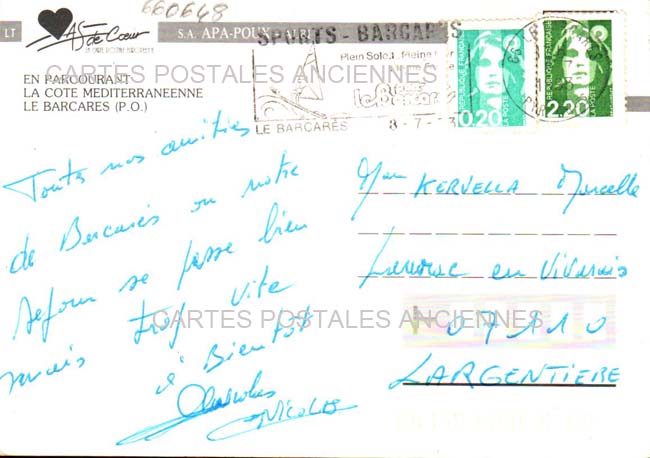 660648
LT
As de Cœur
S.A. APA-POUX - ALBI
EN PARCOURANT
LA COTE MEDITERRANEENNE
LE BARCARES (P.O.)
SPORTS - BARCARES
Plein Soleil Pleine
LE BARCARÈS
8-7-
REPUBLIQUE FRANÇAISE
0,20
LA POSTE
REPUBLIQUE FRANÇAISE
2,20
LA POSTE
CARTES POSTALES ANCIENNES
Toutes nos amitiés
de Barcarès ou notre
séjour se passe bien
mais trop vite
à Bientôt
Nicolas
KERVELLA Marcelle
en Vivarais
07110
LARGENTIERE
CARTES POSTALES ANCIENNES